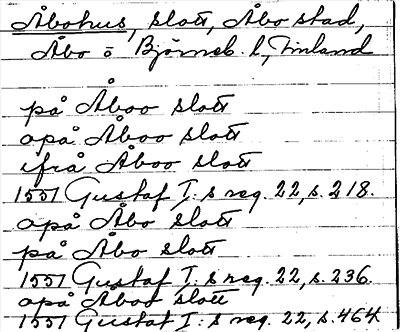 Åbohus, slott, Åbo stad,
Åbo o Björneb. l, Finland
på Åboo slott
opå Åboo slott
ifrå Åboo slott
1551 Gustaf I:s reg. 22, s. 218.
opå Åbo slott
på Åbo slott
1551 Gustaf I:s reg. 22, s. 236.
opå Åboo slott
1551 Gustaf I:s reg. 22, s. 464.